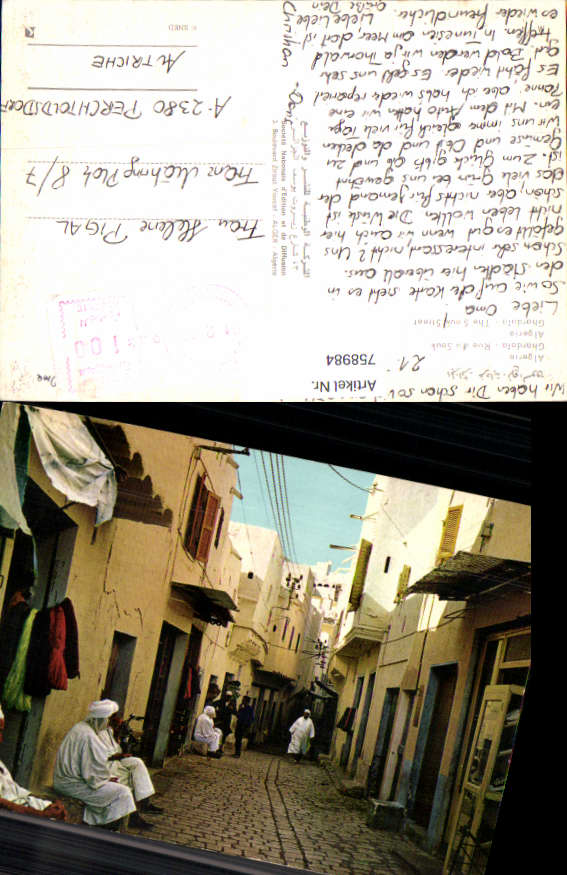 Wir haben Dir schon so v
Algeria
Ghardaia - Rue du Souk
Algeria
Ghardaia - The Souk Street
21.
Liebe Oma
So wie auf der Karte sieht es in
den Städten hier überall aus.
Schon sehr interessant, nicht? Uns
gefällt es ganz gut, wenn wir auch hier
nicht leben wollten. Die Wüste ist
schön, aber nichts für jemand der
das viele Grün bei uns gewöhnt
ist. Zum Glück gibt's ab und zu
Gemüse und Obst und da decken
wir uns immer gleich für viele Tage
ein. Mit dem Auto hatten wir eine
Panne, aber ich habs wieder repariert
Es fährt wieder. Es geht uns sehr
gut. Bald werden wir ja Thorwald
treffen. In Tunesien am Meer, dort ist
es wieder freundlicher. Liebe liebe
Grüße Dein
Christian - Doris
الشركة الوطنية للنشر والتوزيع
Société Nationale d'Edition et de Diffusion
3, Boulevard Zirout Youcef - ALGER - Algérie
Artikel Nr.
758984
1.00
Frau Helene PIGAL
Franz Mähring Platz 8/7
A-2380 PERCHTOLDSDORF
AUTRICHE
© SNED